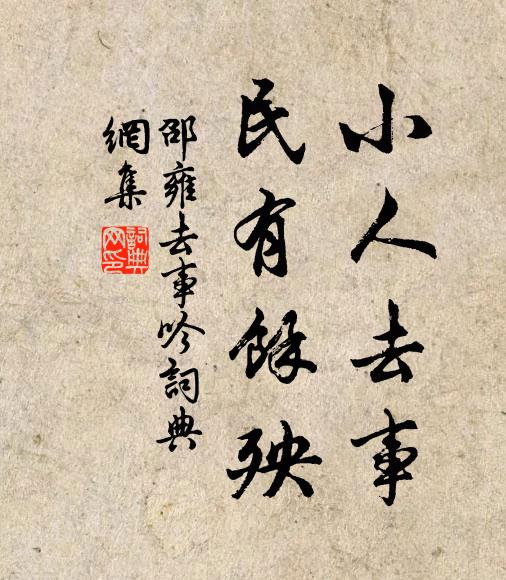 小人去事
民有餘殃
邵雍去事吟詞典
網集
詞典
网印